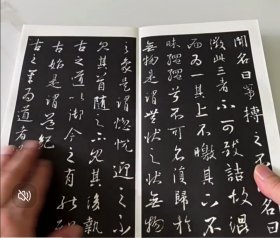 聞名曰希搏之不得名曰
微此三者不可致詰故混
而為一其上不皦其下不
昧繩繩兮不可名復歸於
無物是謂無狀之狀無物
之象是謂惚恍迎之不
見其首隨之不見其後執
古之道以御今之有能
古始是謂道紀
古之善為道者